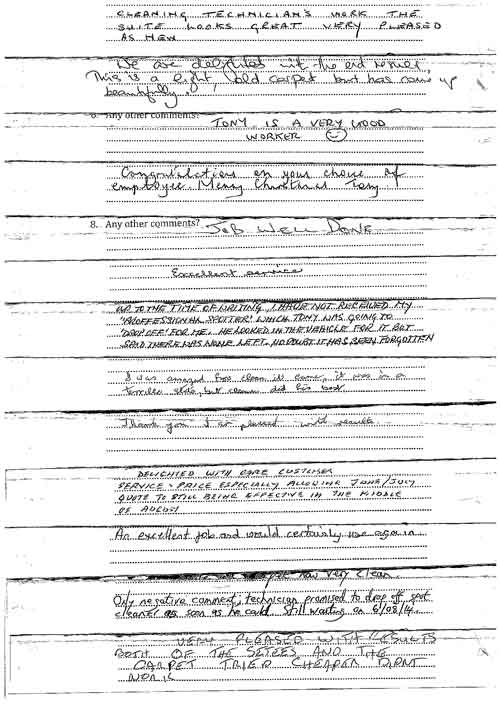 CLEANING TECHNICIAN'S WORK THE
SUITE LOOKS GREAT VERY PLEASED
AS NEW
We are delighted with the end result,
This is a light, old carpet but has come up
beautifully.
Any other comments?
TONY IS A VERY GOOD
WORKER
Congratulations on your choice of
employee. Merry Christmas Tony
8. Any other comments? JOB WELL DONE
Excellent service
UP TO THE TIME OF WRITING, I HAVE NOT RECEIVED MY
'PROFFESSIONAL SPOTTER' WHICH TONY WAS GOING TO
'DROP OFF' FOR ME. HE LOOKED IN THE VEHICLE FOR IT BUT
SAID THERE WAS NONE LEFT. NO DOUBT IT HAS BEEN FORGOTTEN
I was amazed how clean it came, it was in a
terrible state, but did his best
Thank you I am pleased with results
DELIGHTED WITH CARE CUSTOMER
SERVICE + PRICE ESPECIALLY ALLOWING JUNE/JULY
QUOTE TO STILL BEING EFFECTIVE IN THE MIDDLE
OF AUGUST
An excellent job and would certainly use again
now very clean
Only negative comment, technician promised to drop off spot
cleaner as soon as he could. Still waiting on 6/08/4.
VERY PLEASED WITH RESULTS
BOTH OF THE SETEES AND THE
CARPET TRIED CHEAPER DIDNT
WORK